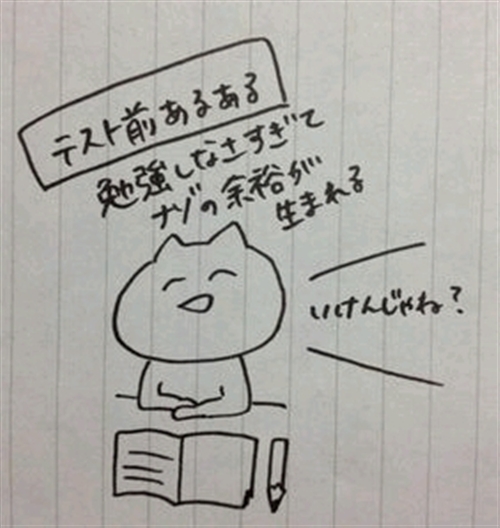 テスト前あるある
勉強しなさすぎて
ナゾの余裕が
生まれる
いけんじゃね?